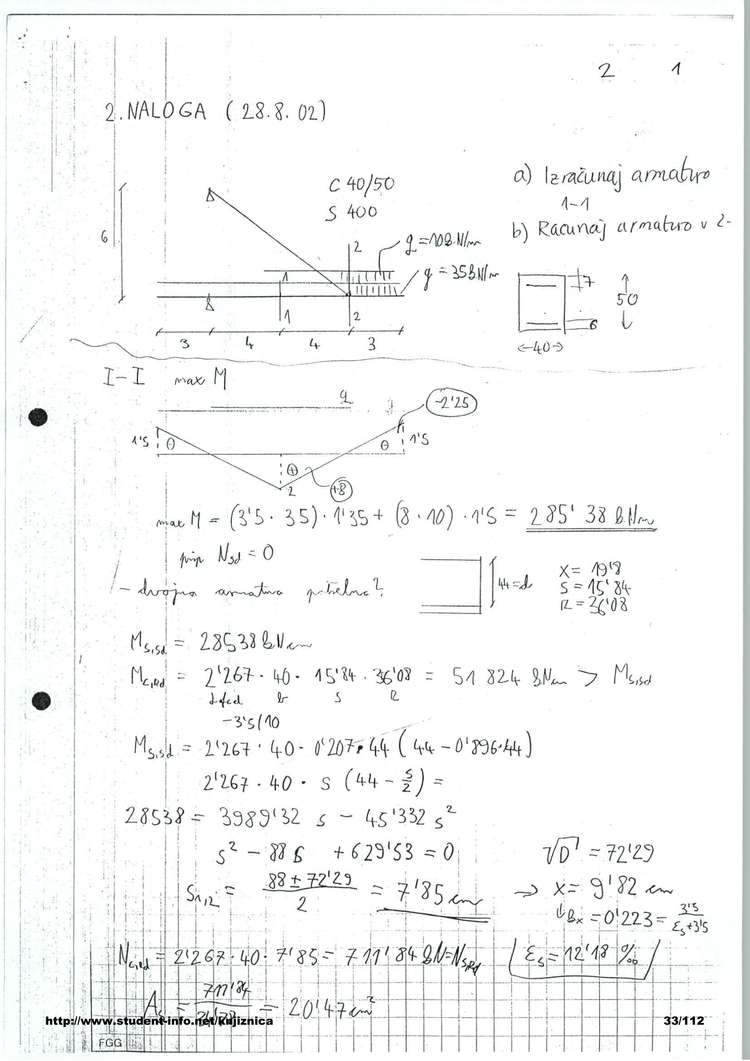 2 1
2. NALOGA (28.8.02)
C 40/50
S 400
a) Izračunaj armaturo
1-1
b) Računaj armaturo v 2-
6
2
q = 10 kN/m
g = 35 kN/m
1
1
2
3 4 4 3
7
50
6
←40→
I-I max M
q g
-2'25
1'5 θ θ 1'5
⊕
2
+8
max M = (3'5 · 35) · 1'35 + (8 · 10) · 1'5 = 285'38 kNm
Nsd = 0
- dvojna armatura potrebna?
44=d
X = 19'8
S = 15'84
R = 36'08
Ms,sd = 28538 kNcm
Mc,Rd = 2'267 · 40 · 15'84 · 36'08 = 51 824 kNcm > Ms,sd
b s R
-3'5/10
Ms,sd = 2'267 · 40 · 0'207 · 44 (44 - 0'896·44)
2'267 · 40 · s (44 - s/2) =
28538 = 3989'32 s - 45'332 s²
s² - 88 s + 629'53 = 0
√D = 72'29
s1,2 = 88 ± 72'29 / 2 = 7'85 cm
→ X = 9'82 cm
Bx = 0'223 = 3'5 / εs+3'5
Nc,Rd = 2'267 · 40 · 7'85 = 711'84 kN = Ns,Rd
εs = 12'18 ‰
As = 711'84 = 20'47 cm²
http://www.student-info.net/knjiznica
33/112
FGG